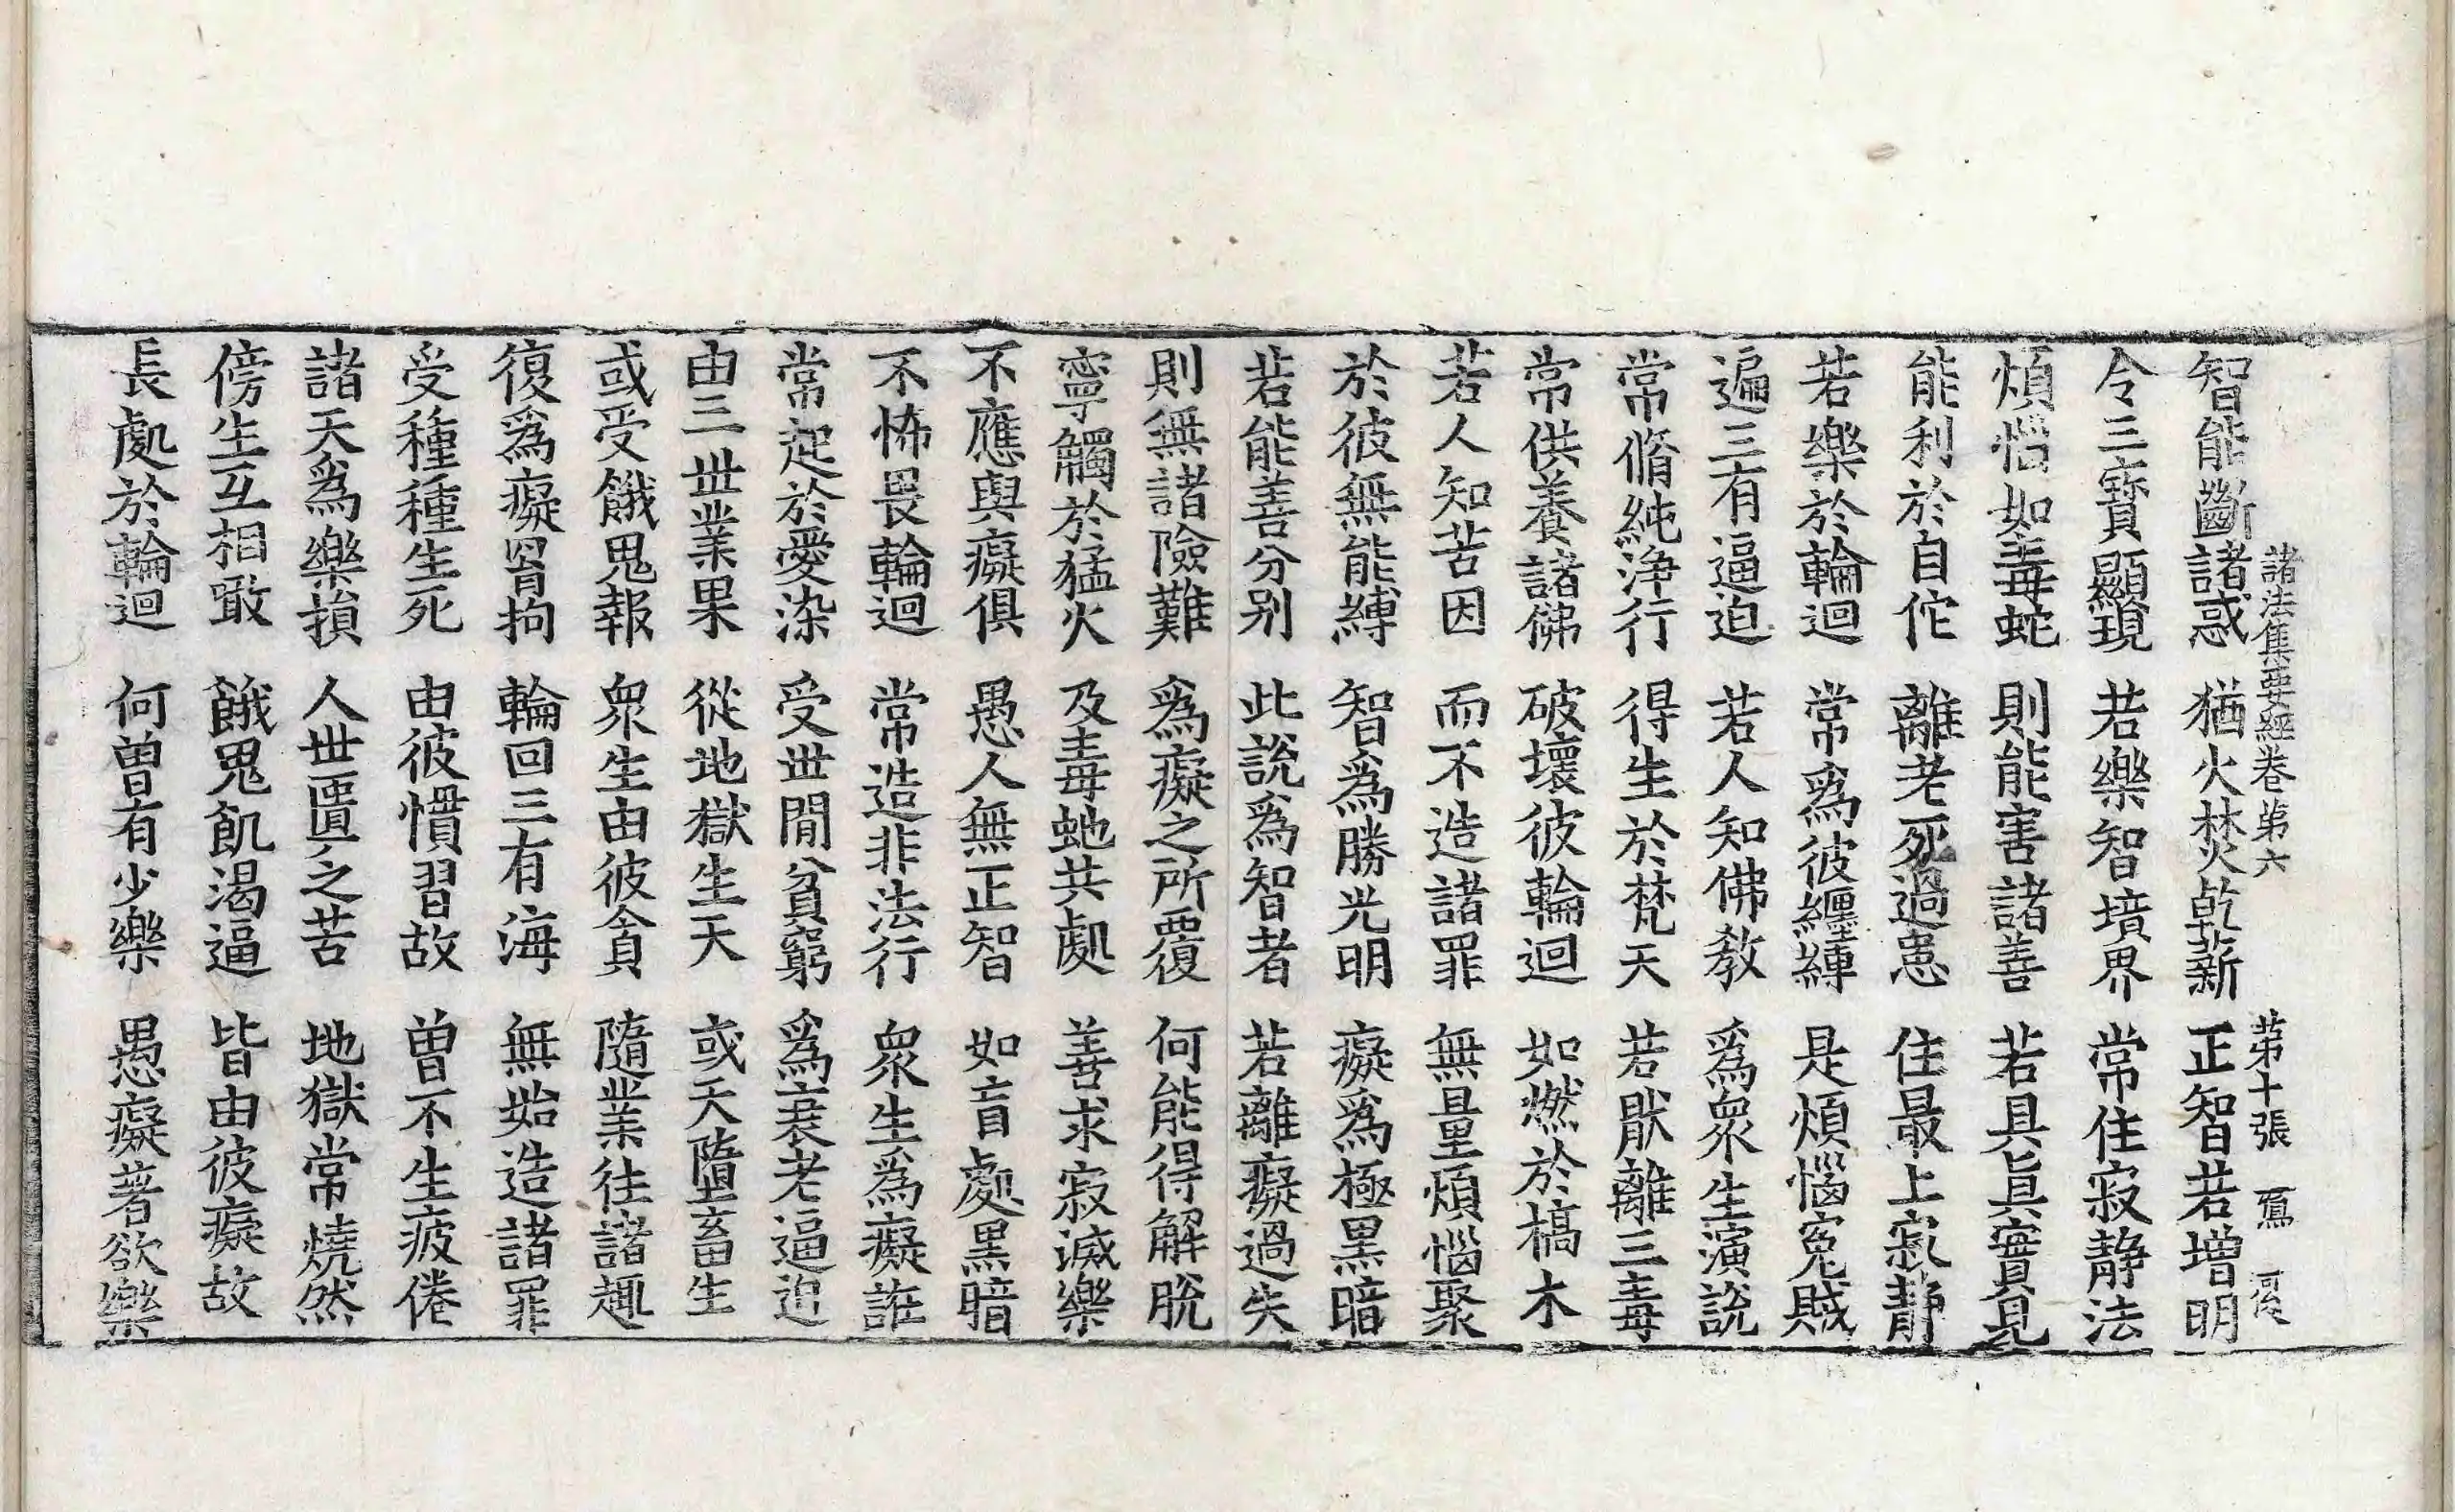 諸法集要經卷第六　第十張　鳫
智能斷諸惑　猶火焚乾薪　正智若增明
令三寶顯現　若樂智境界　常住寂靜法
煩惱如毒蛇　則能害諸善　若具眞實見
能利於自佗　離老死過患　住最上寂靜
若樂於輪迴　常爲彼纏縛　是煩惱冤賊
遍三有逼迫　若人知佛教　爲衆生演說
常脩純淨行　得生於梵天　若猒離三毒
常供養諸佛　破壞彼輪迴　如燃於槁木
若人知苦因　而不造諸罪　無量煩惱聚
於彼無能縛　智爲勝光明　癡爲極黑暗
若能善分別　此說爲智者　若離癡過失
則無諸險難　爲癡之所覆　何能得解脫
寧觸於猛火　及毒虵共處　善求寂滅樂
不應與癡俱　愚人無正智　如盲處黑暗
不怖畏輪迴　常造非法行　衆生爲癡誑
常起於愛染　受世間貧窮　爲衰老逼迫
由三世業果　從地獄生天　或天墮畜生
或受餓鬼報　衆生由彼貪　隨業往諸趣
復爲癡罥拘　輪回三有海　無始造諸罪
受種種生死　由彼慣習故　曾不生疲倦
諸天爲樂損　人世匱乏苦　地獄常燒然
傍生互相噉　餓鬼飢渴逼　皆由彼癡故
長處於輪迴　何曾有少樂　愚癡著欲樂